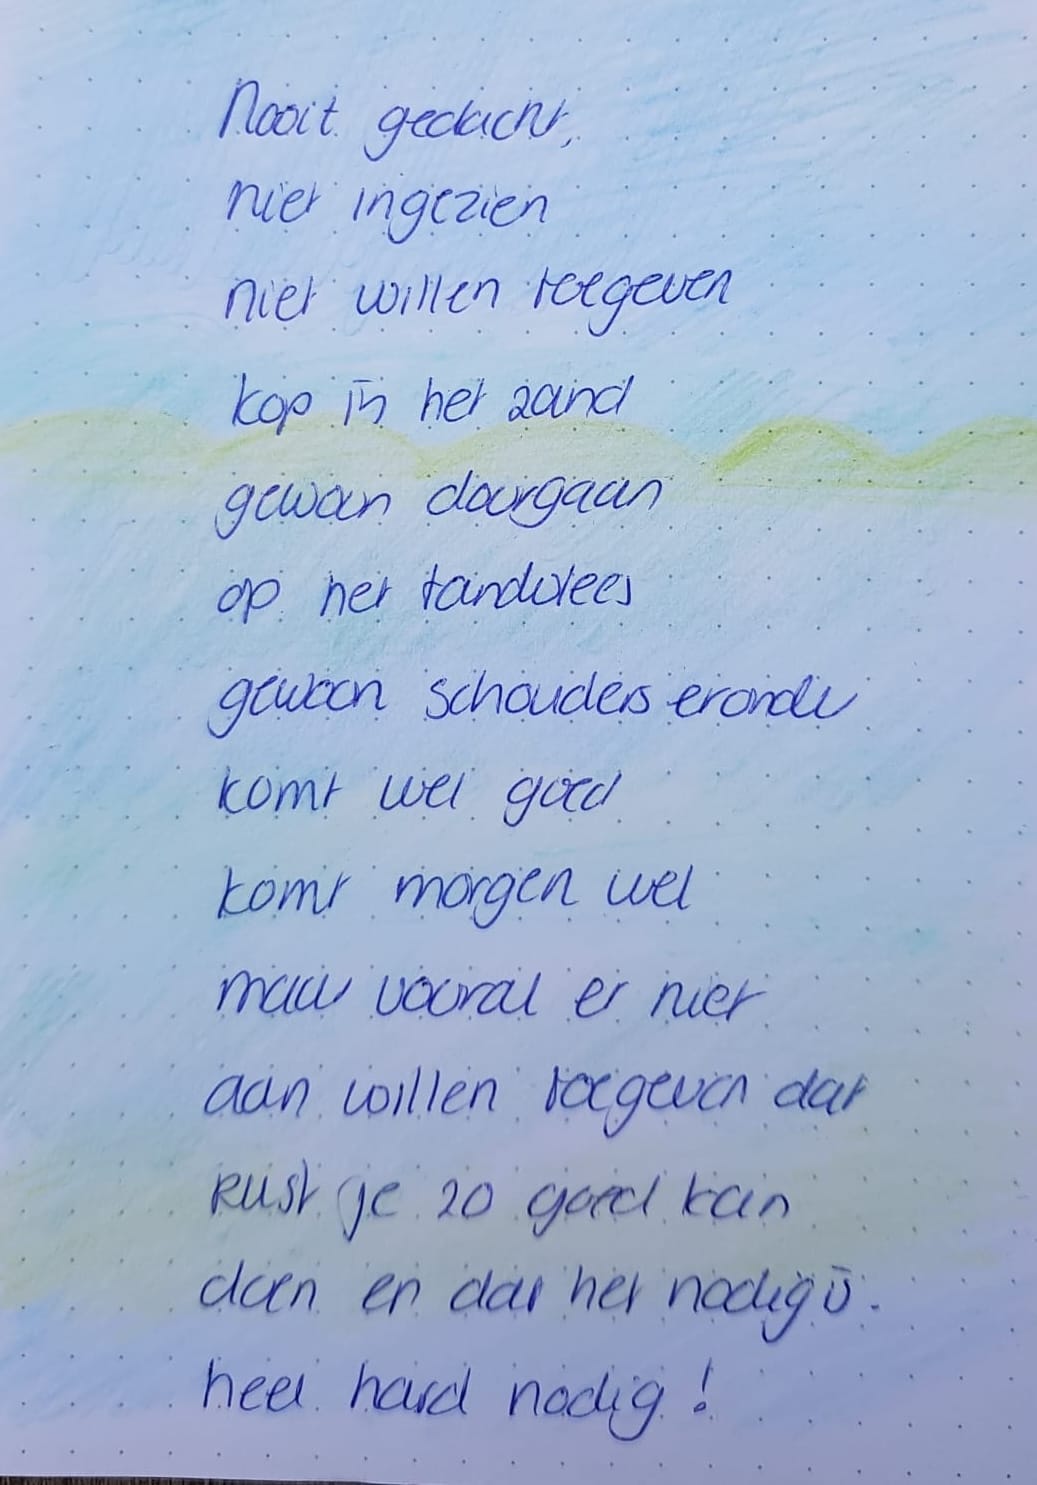 Nooit gedacht,
niet ingezien
niet willen toegeven
kop in het zand
gewoon doorgaan
op het tandvlees
gewoon schouders eronder
komt wel goed
komt morgen wel
maar vooral er niet
aan willen toegeven dat
rust je zo goed kan
doen en dat het nodig is.
heel hard nodig!